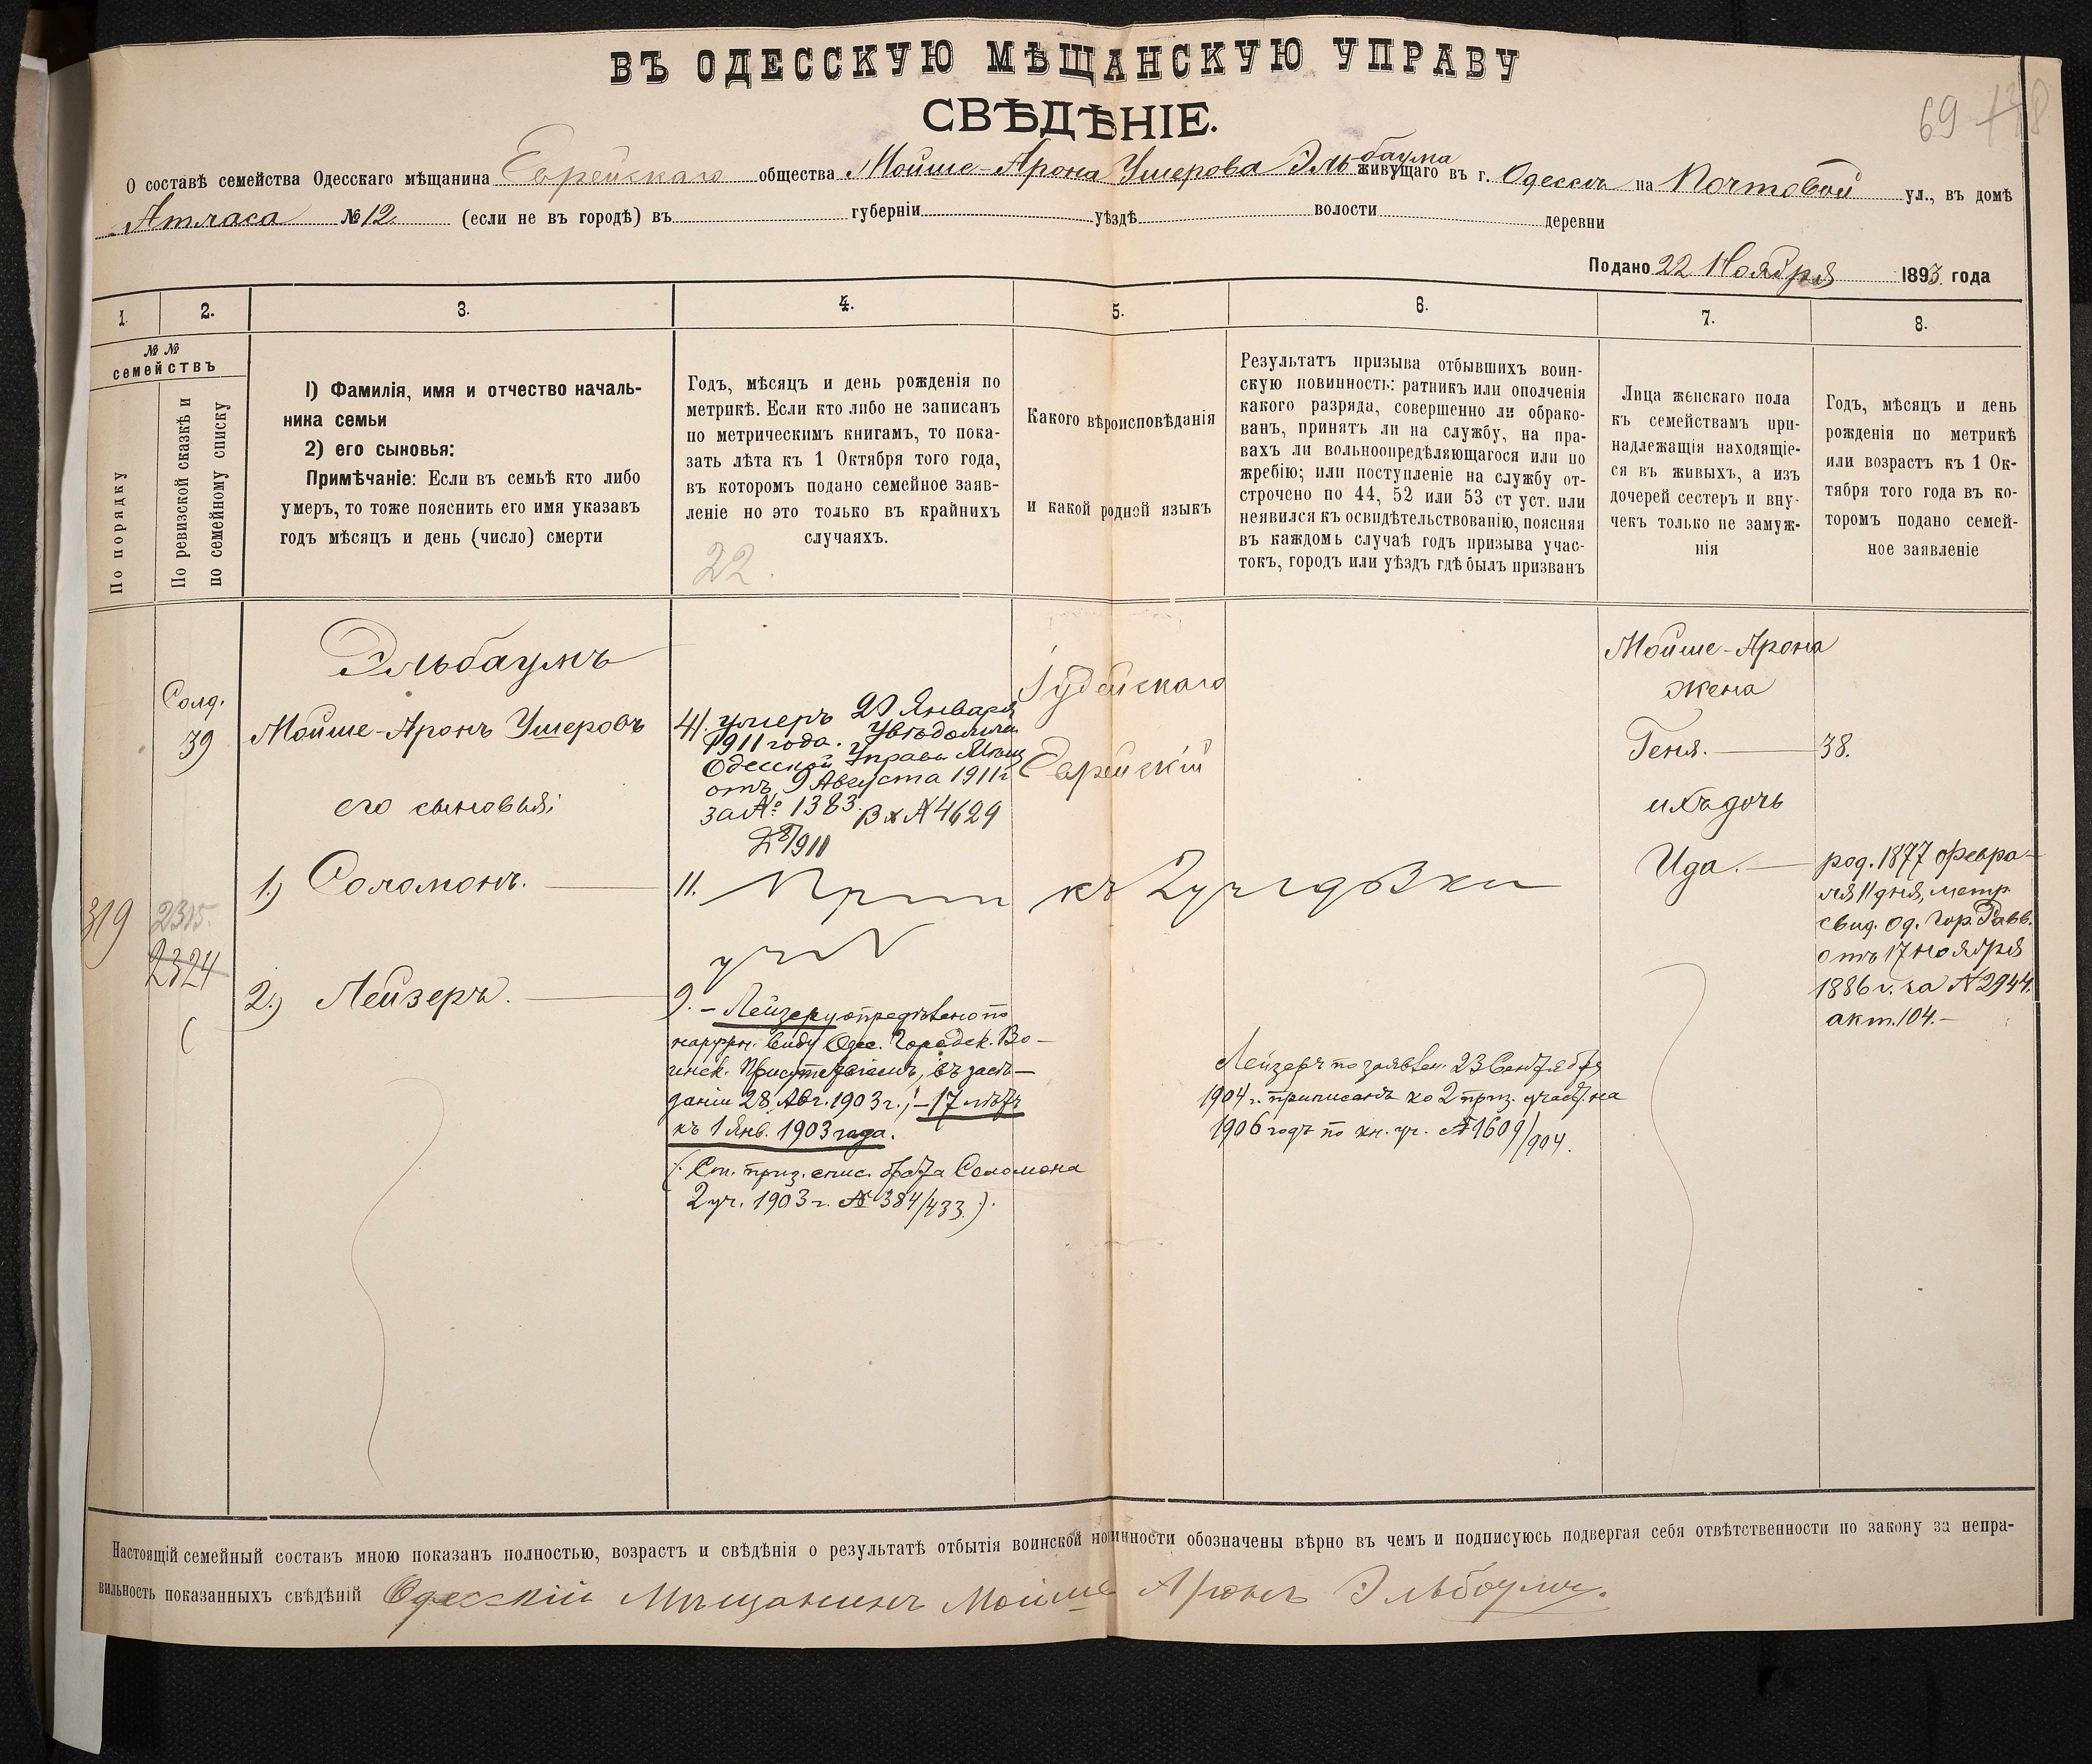 ВЪ ОДЕССКУЮ МѢЩАНСКУЮ УПРАВУ
СВѢДѢНІЕ.
69
О составѣ семейства Одесскаго мѣщанина Еврейскаго общества Мойше-Арона Ушерова Эльбаума живущаго въ г. Одессѣ на Почтовой ул., въ домѣ
Атласа №12 (если не въ городѣ) въ губерніи уѣздѣ волости деревни
Подано 22 Ноября 1893 года
1. 2. 3. 4. 5. 6. 7. 8.
№ №
семействъ
По порядку
По ревизской сказкѣ и
по семейному списку
1) Фамилія, имя и отчество началь-
ника семьи
2) его сыновья:
Примѣчаніе: Если въ семьѣ кто либо
умеръ, то тоже пояснить его имя указавъ
годъ мѣсяцъ и день (число) смерти
Годъ, мѣсяцъ и день рожденія по
метрикѣ. Если кто либо не записанъ
по метрическимъ книгамъ, то пока-
зать лѣта къ 1 Октября того года,
въ которомъ подано семейное заяв-
леніе но это только въ крайнихъ
случаяхъ.
22.
Какого вѣроисповѣданія
и какой родной языкъ
Результатъ призыва отбывшихъ воин-
скую повинность: ратникъ или ополченія
какого разряда, совершенно ли обрако-
ванъ, принятъ ли на службу, на пра-
вахъ ли вольноопредѣляющагося или по
жребію; или поступленіе на службу от-
строчено по 44, 52 или 53 ст уст. или
неявился къ освидѣтельствованію, поясняя
въ каждомъ случаѣ годъ призыва учас-
токъ, городъ или уѣздъ гдѣ былъ призванъ
Лица женскаго пола
къ семействамъ при-
надлежащія находящіе-
ся въ живыхъ, а изъ
дочерей сестеръ и вну-
чекъ только не замуж-
нія
Годъ, мѣсяцъ и день
рожденія по метрикѣ
или возрастъ къ 1 Ок-
тября того года въ ко-
торомъ подано семей-
ное заявленіе
319
Солд.
39
2315.
2324
Эльбаумъ
Мойше-Аронъ Ушеровъ
его сыновья:
1.) Соломонъ.
2.) Лейзеръ.
41. умеръ 20 Января
1911 года. Увѣдомлен.
Одесской Управы Мѣщ
отъ 9 Августа 1911 г
за № 1383. Вх №4629
11. Прип къ 2 уч
9. – Лейзеру опредѣлено по
наружн. виду Одес. Городск. Во-
инск. Присутствіемъ, въ засѣ-
даніи 28 Авг. 1903 г., – 17 лѣтъ
къ 1 Янв. 1903 года.
(См. приз. спис. брата Соломона
2 уч. 1903 г. № 384/433.).
Іудейскаго
Еврейскій
Лейзеръ по заявлен. 23 Сентября
1904 г. приписанъ ко 2 приз. участ. на
1906 годъ по кн. уч. №1609/904.
Мойше-Арона
жена
Геня. 38.
ихъ дочь
Ида. род. 1877 февра-
ля 11 дня, метр.
свид. Од. Гор. Равв.
отъ 17 ноября
1886 г. за №2944.
акт. 104.–
Настоящій семейный составъ мною показанъ полностью, возрастъ и свѣдѣнія о результатѣ отбытія воинской повинности обозначены вѣрно въ чемъ и подписуюсь подвергая себя отвѣтственности по закону за непра-
вильность показанныхъ свѣдѣній Одесскій Мѣщанинъ Мойше Аронъ Эльбаумъ.